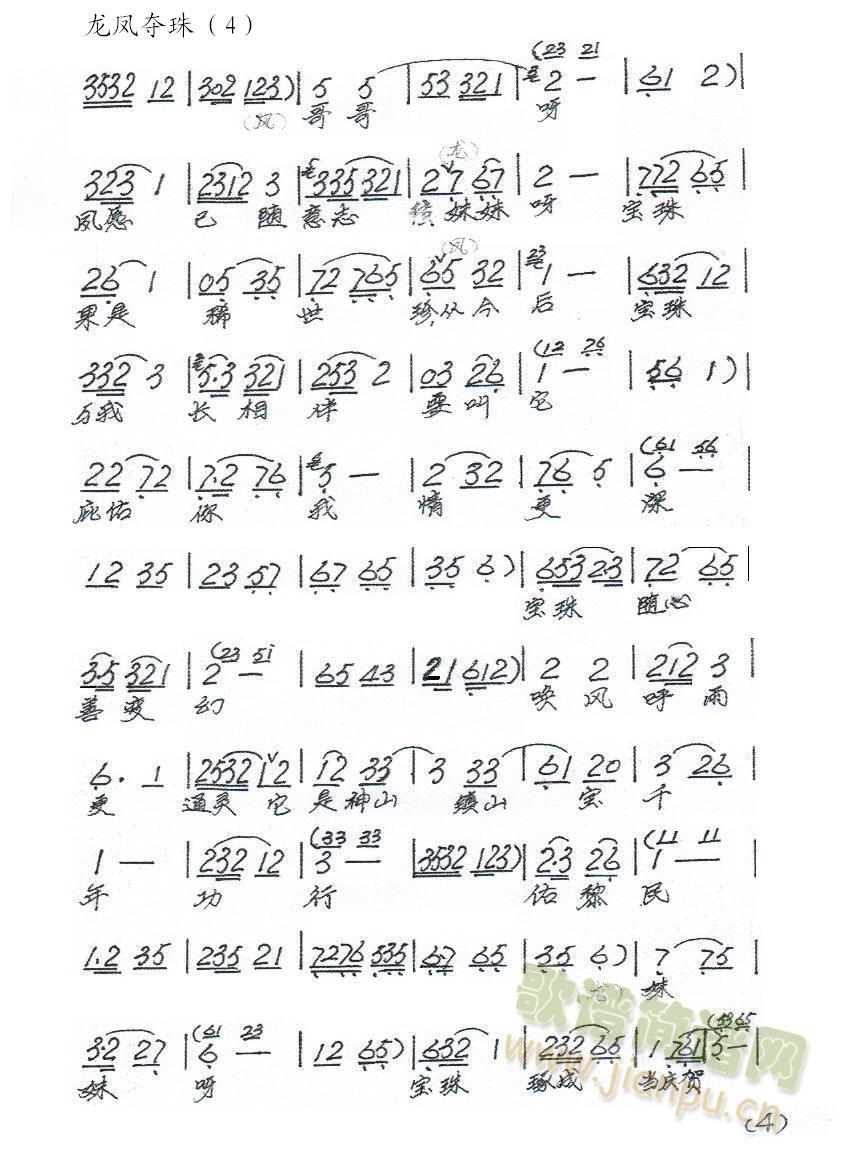 龙凤夺珠（4）
(23 21
3532 12 | 302 123) | 5 5 | 53 321 | 2 — | 61 2) |
(凤) 哥 哥 呀
(龙)
323 1 | 2312 3 | 335 321 | 27 67 | 2 — | 772 65 |
凤愿 已 随 意志 妹妹 呀 宝珠
(凤)
26 1 | 05 35 | 72 765 | 65 32 | 1 — | 632 12 |
果是 稀 世 珍,从今 后 宝珠
(12 26
332 3 | 5·3 321 | 253 2 | 03 26 | 1 — | 56 1) |
与我 长 相 伴 要叫 它
(61 56
22 72 | 7·2 76 | 5 — | 2 32 | 76 5 | 6 — |
庇佑 你 我 情 更 深
12 35 | 23 57 | 67 65 | 35 6) | 653 2·3 | 72 65 |
宝珠 随心
(23 51
3·5 321 | 2 — | 65 43 | 21 612) | 2 2 | 212 3 |
善变 幻 唤 风 呼 雨
6· 1 | 2532 12 | 12 33 | 3 33 | 61 20 | 3 26 |
更 通灵 它 是神山 镇山 宝 千
(33 33 (11 11
1 — | 232 12 | 3 — | 3532 123) | 2·3 26 | 1 — |
年 功 行 佑 黎 民
1·2 35 | 235 21 | 7276 535 | 6·7 65 | 35 6) | 7 75 |
(龙) 妹
(61 23 (5365
3·2 27 | 6 — | 12 65) | 632 1 | 232 65 | 1 761 | 5 — |
妹 呀 宝珠 琢成 当庆贺
歌谱简谱网
www.jianpu.cn
(4)